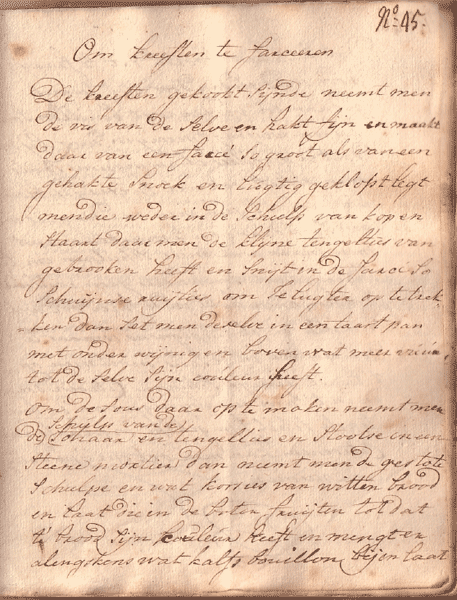 No: 45.
Om kreeften te farceeren
De kreeften gekookt sijnde neemt men
de vis van de selve en hakt fijn en maakt
daar van een farcé so groot als van een
gehakte Snoek en lugtig geklopt legt
men die weder in de Schulp van kop en
Staart daar men de klyne tengelties van
gebrooken heeft en Snijt in de farcé so
Schuijnse ruijties om te lugter op te trek-
ken dan Set men deselve in een taart pan
met onder wijnig en boven wat meer vuur
tot de selve Sijn couleur heeft.
om de Sous daar op te maken neemt men
Schulp van de
de Schaar en tengelties en Stootse in een
Steene mortier dan neemt men de gestote
Schulpe en wat korsies van witten brood
en laat die in de boter fruijten tot dat
t' brood Sijn couleur heeft en mengt er
alengskens wat kalfs bouillon bij en laat